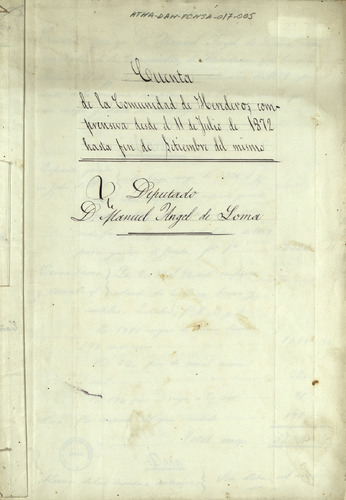 ATHA-DAH-FCNSA-017-005
Cuenta
de la Comunidad de Herederos com-
prensiva desde el 11 de Julio de 1872
hasta fin de Setiembre del mismo
Diputado
D. Manuel Angel de Loma